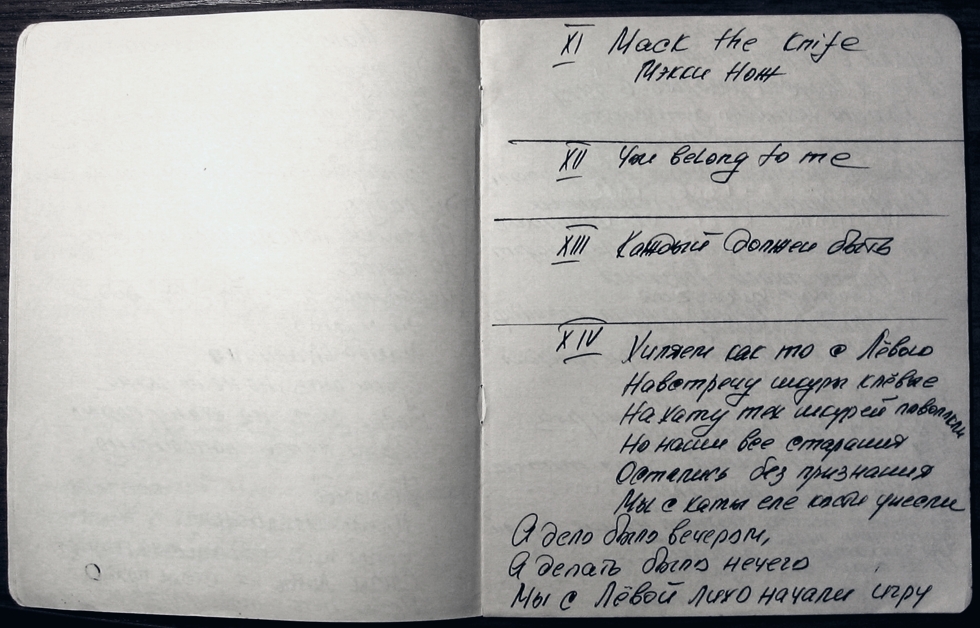 XI Mack the Knife
Мэкки Нож
XII You belong to me
XIII Каждый должен быть
XIV Хиляем как то с Лёвою
Навстречу шкуры клёвые
На хату тех шкурей поволокли
Но наши все старания
Остались без признания
Мы с хаты еле кости унесли
А дело было вечером,
А делать было нечего
Мы с Лёвой лихо начали игру